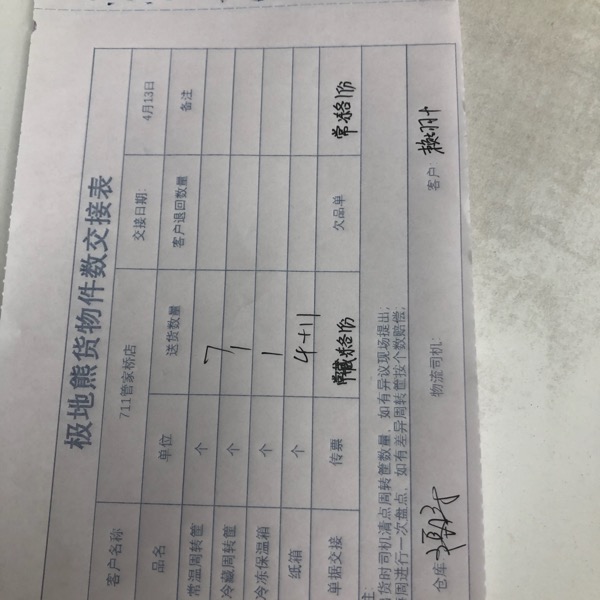 极地熊货物件数交接表
客户名称 711管家桥店 交接日期: 4月13日
品名 单位 送货数量 客户退回数量 备注
常温周转筐 个 7
冷藏周转筐 个 1
冷冻保温箱 个 1
纸箱 个 4+11
单据交接 传票 常藏冻各1份 欠品单 常冻各1份
注:
货时司机清点周转筐数量，如有异议现场提出;
周进行一次盘点，如有差异周转筐按个数赔偿;
仓库: 物流司机: 客户: